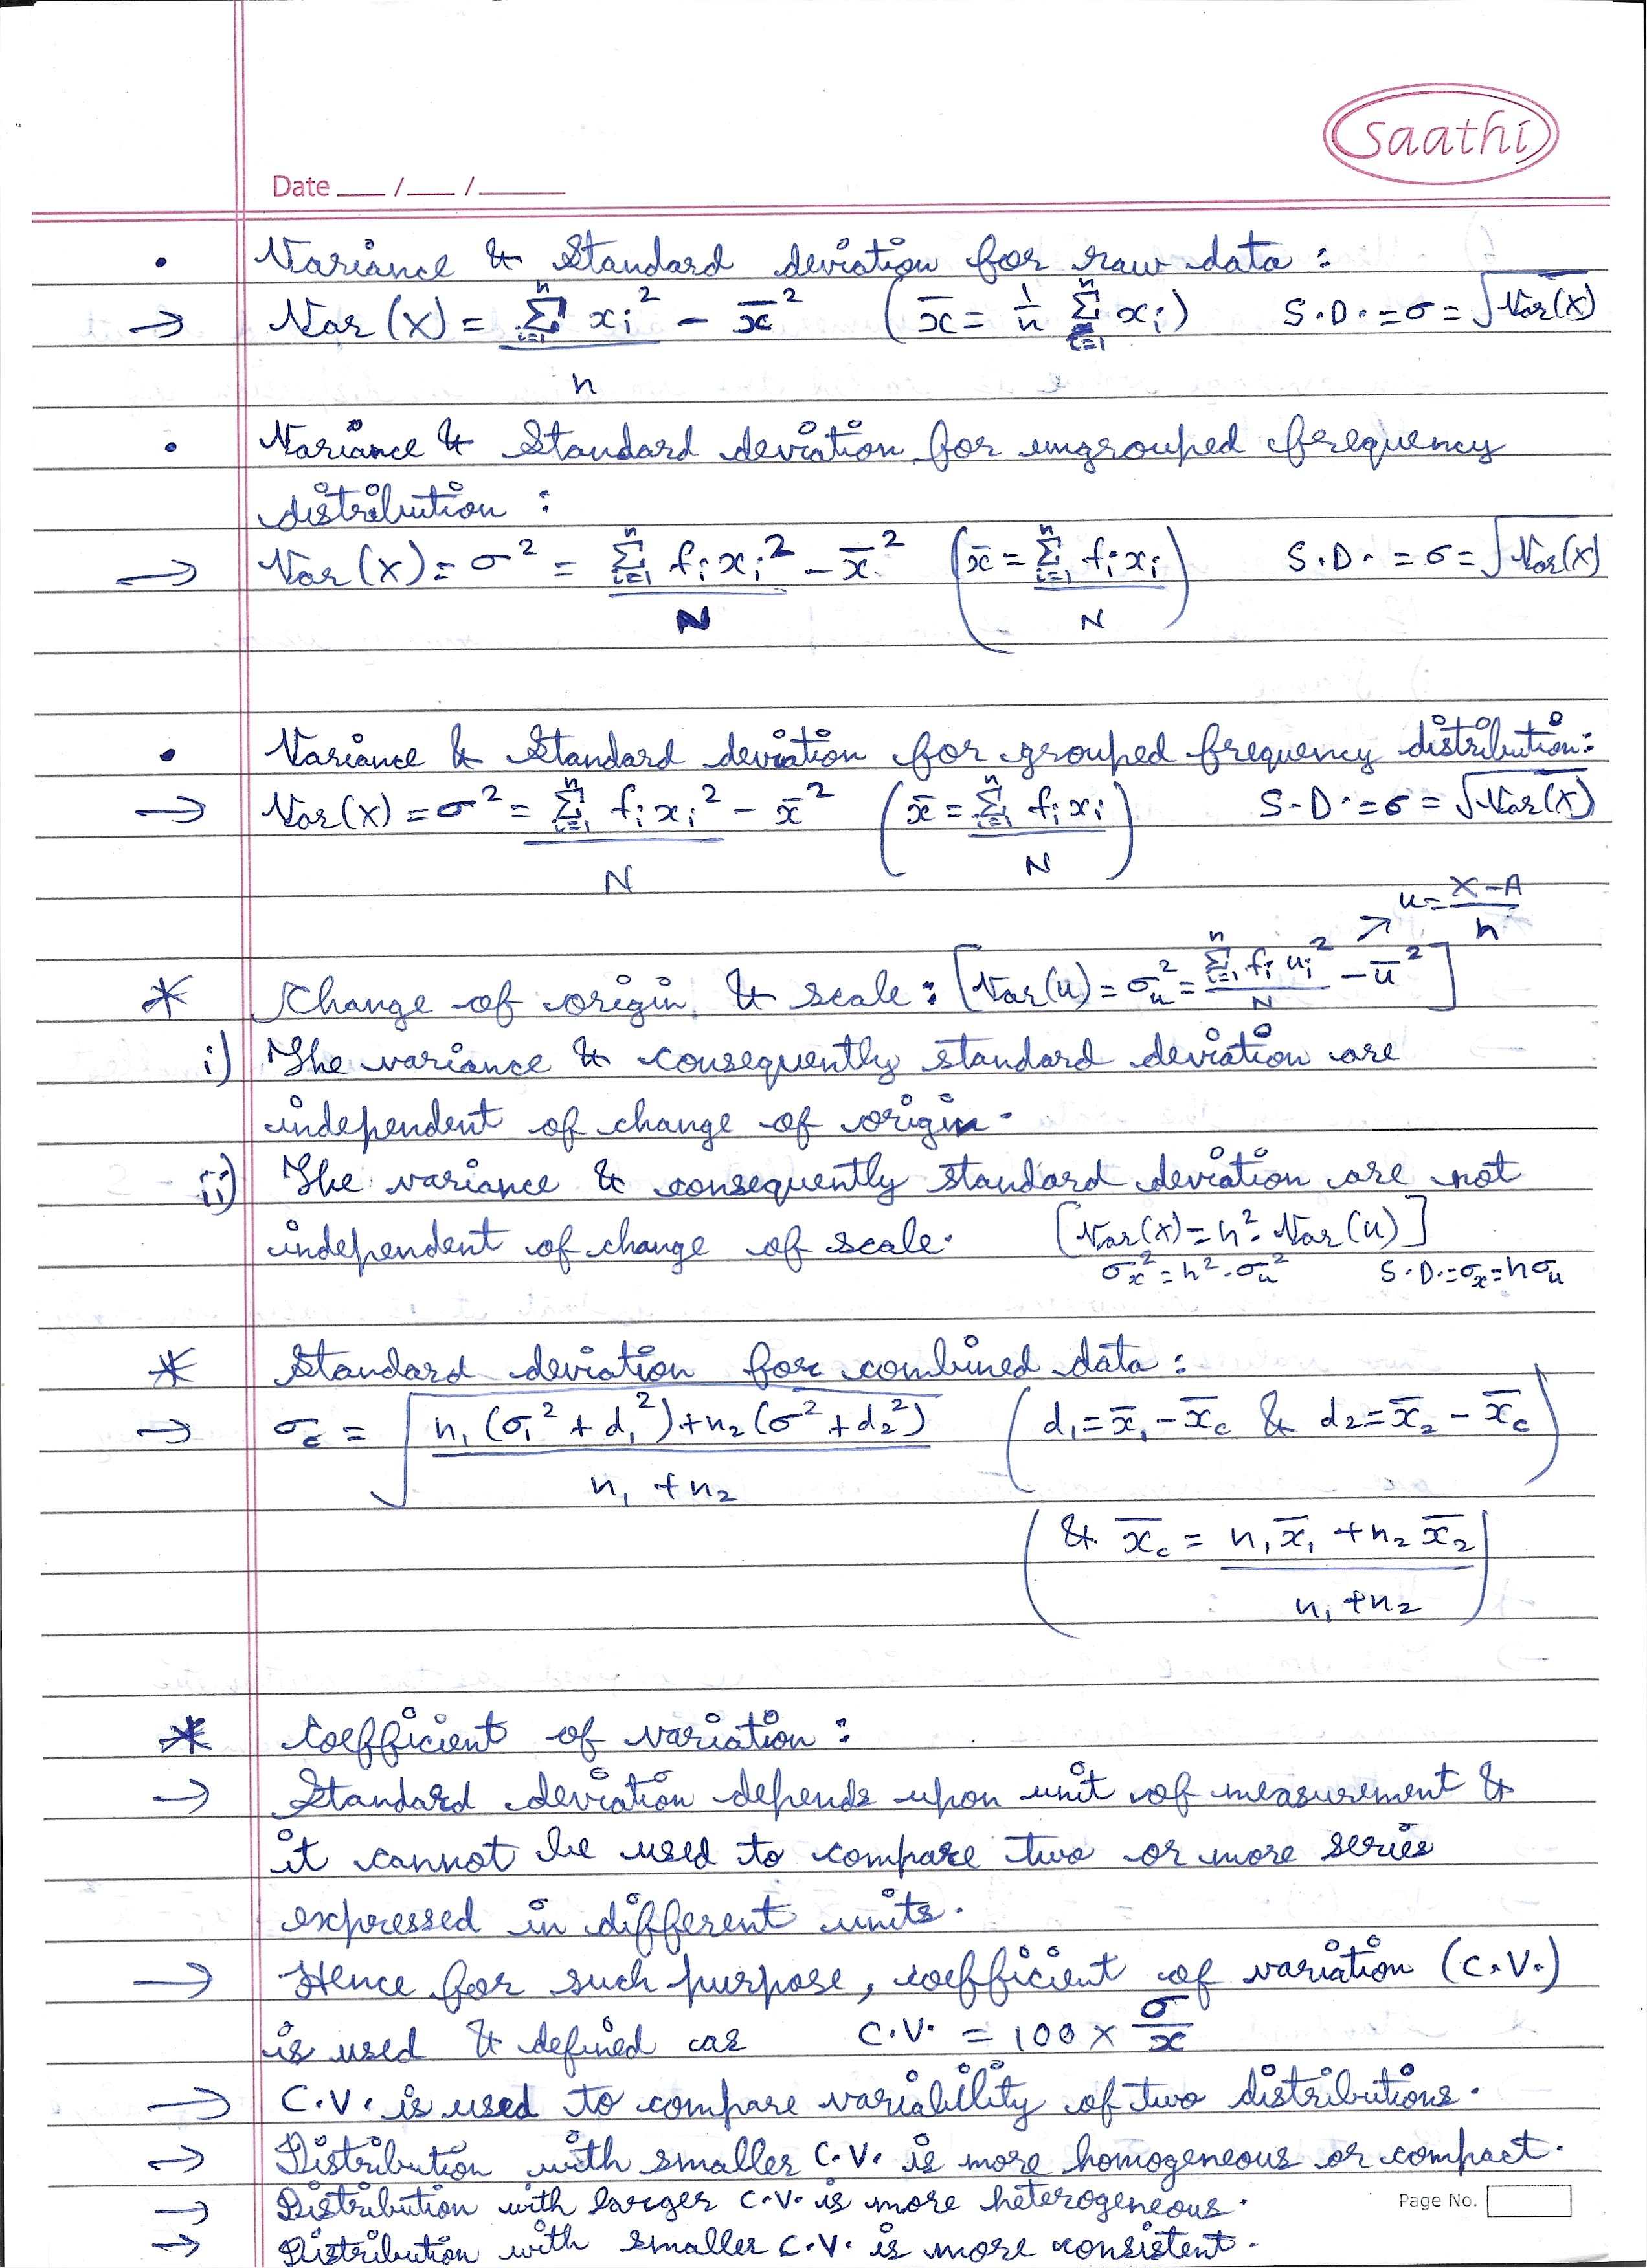 Saathi
Date ___ / ___ / ______
• Variance & Standard deviation for raw data :
→ Var (X) = Σ_{i=1}^{n} xᵢ² / n − x̄² ( x̄ = 1/n Σ_{i=1}^{n} xᵢ ) S.D. = σ = √Var(X)
• Variance & Standard deviation for ungrouped frequency
distribution :
→ Var (X) = σ² = Σ_{i=1}^{n} fᵢ xᵢ² / N − x̄² ( x̄ = Σ_{i=1}^{n} fᵢ xᵢ / N ) S.D. = σ = √Var(X)
• Variance & Standard deviation for grouped frequency distribution:
→ Var(X) = σ² = Σ_{i=1}^{n} fᵢ xᵢ² / N − x̄² ( x̄ = Σ_{i=1}^{n} fᵢ xᵢ / N ) S.D. = σ = √Var(X)
↗ u = X−A / h
* Change of origin & scale : [ Var(u) = σ_u² = Σ_{i=1}^{n} fᵢ uᵢ² / N − ū² ]
i) The variance & consequently standard deviation are
independent of change of origin.
ii) The variance & consequently standard deviation are not
independent of change of scale. [ Var(X) = h². Var(u) ]
σ_x² = h². σ_u² S.D. = σ_x = hσ_u
* Standard deviation for combined data :
→ σ_c = √( n₁ (σ₁² + d₁²) + n₂ (σ² + d₂²) / n₁ + n₂ ) ( d₁ = x̄₁ − x̄_c & d₂ = x̄₂ − x̄_c )
( & x̄_c = n₁x̄₁ + n₂x̄₂ / n₁ + n₂ )
* Coefficient of variation :
→ Standard deviation depends upon unit of measurement &
it cannot be used to compare two or more series
expressed in different units.
→ Hence for such purpose, coefficient of variation (C.V.)
is used & defined as C.V. = 100 × σ / x̄
→ C.V. is used to compare variability of two distributions.
→ Distribution with smaller C.V. is more homogeneous or compact.
→ Distribution with larger C.V. is more heterogeneous.
Page No.
→ Distribution with smaller C.V. is more consistent.